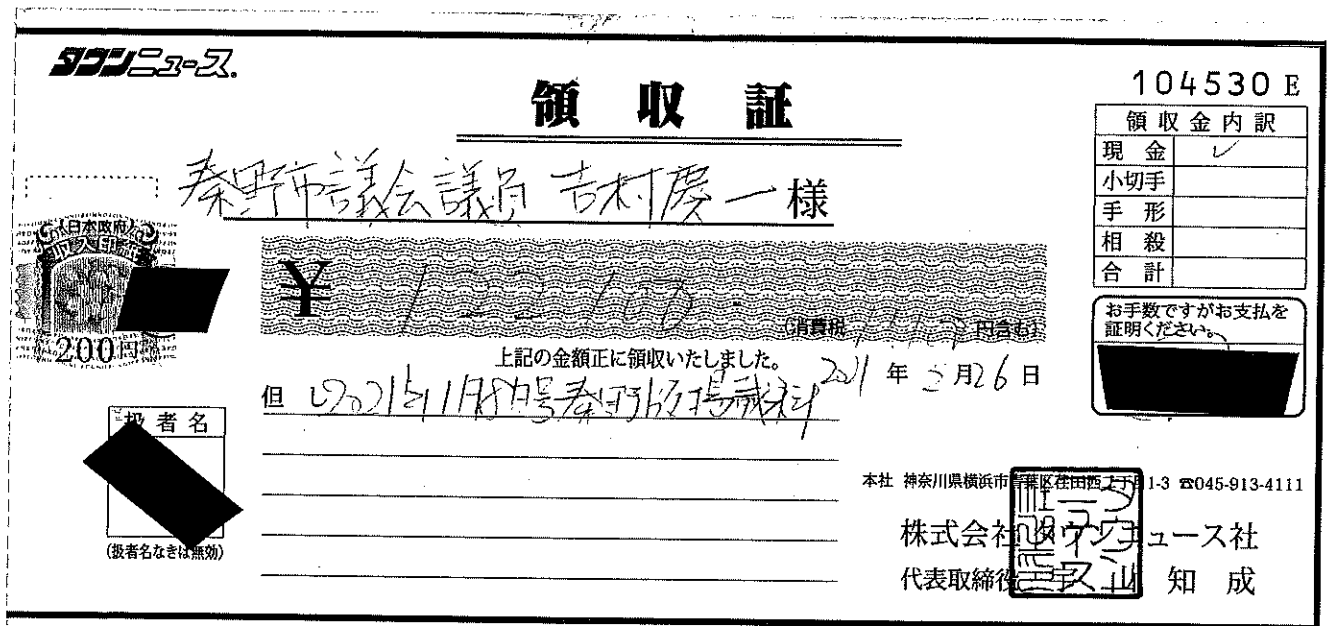 タウンニュース.
領収証
104530 E
領収金内訳
現金 ✓
小切手
手形
相殺
合計
秦野市議会議員 吉村慶一様
日本政府
200円
¥122,100-
(消費税 円含む)
お手数ですがお支払を
証明ください。
上記の金額正に領収いたしました。
2021年2月26日
但 2021年1月8日号秦野版掲載料
扱者名
(扱者名なきは無効)
本社 神奈川県横浜市青葉区荏田西二丁目1-3 ☎045-913-4111
株式会社タウンニュース社
代表取締役 宇山知成